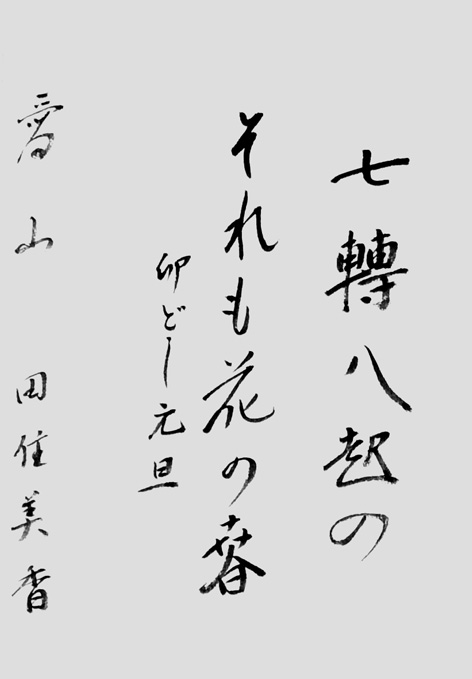 七轉八起の
それも花の春
卯どし元旦
愛山 田住美香